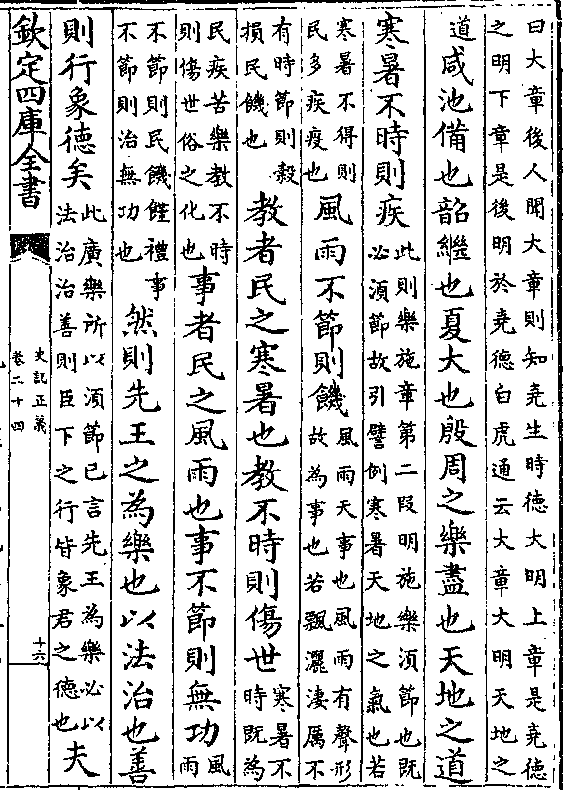 曰大章後人聞大章則知堯生時徳大明上章是堯徳
之明下章是後明於堯德白虎通云大章大明天地之
道咸池備也韶繼也夏大也殷周之樂盡也天地之道
寒暑不時則疾此則樂施章第二段明施樂須節也既
必須節故引譬例寒暑天地之氣也若
寒暑不得則
民多疾疫也風雨不節則饑風雨天事也風雨有聲形
故為事也若飄灑淒厲不
有時節則穀
損民饑也教者民之寒暑也教不時則傷世寒暑不
時既為
民疾苦樂教不時
則傷世俗之化也事者民之風雨也事不節則無功風
雨
不節則民饑饉禮事
不節則治無功也然則先王之為樂也以法治也善
則行象德矣此廣樂所以須節已言先王為樂必以
法治治善則臣下之行皆象君之德也夫
欽定四庫全書
史記正義
卷二十四
十六